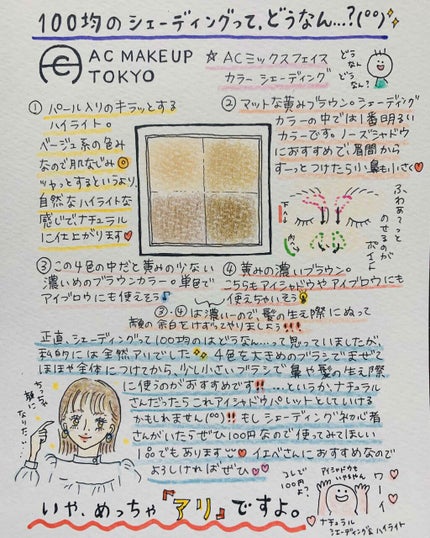 100均のシェーディングって、どうなん…?(°°)
AC MAKEUP
TOKYO
☆ACミックスフェイス
カラー シェーディング
どう
なん
どう
なん?
① パール入りのキラッとする
ハイライト。
ベージュ系の色み
なので肌なじみ◎
ツヤっとするというより、
自然なハイライトな
感じでナチュラル
に仕上がります♥
② マットな黄みブラウン。シェーディング
カラーの中では1番明るい
カラーです。ノーズシャドウ
におすすめで、眉間から
すーっとつけたら小鼻も小さく♥
ふわぁ〜っと
のせるのが
ポイント
③ この4色の中だと黄みの少ない
濃いめのブラウンカラー。単色で
アイブロウにも使えそう
④ 黄みの濃いブラウン。
こちらもアイシャドウやアイブロウにも
使えちゃいそう
③・④は濃いので、髪の生え際にぬって
顔の余白をけずっとやりましょう!!!
正直、シェーディングって100均のはどうなん…って思っていましたが、
私的には全然アリでした✨ 4色を大きめのブラシでまぜて
ほほや全体につけてから、少し小さいブラシで鼻や髪の生え際
に使うのがおすすめです!! …というか、ナチュラル
さんだったらこれアイシャドウパレットとしていける
かもしれません(°°)!! もしシェーディング初心者
さんがいたらぜひ100円なので使ってみてほしい
1品でもあります♡ イエベさんにおすすめなので
よろしければぜひ♥♥
ちいさい
顔に
なりたい…
コレで
100円
よ?
アイシャドウも
いけちゃうよん
ワーイ
ナチュラル
シェーディング&ハイライト
いや、めっちゃ『アリ』ですよ。